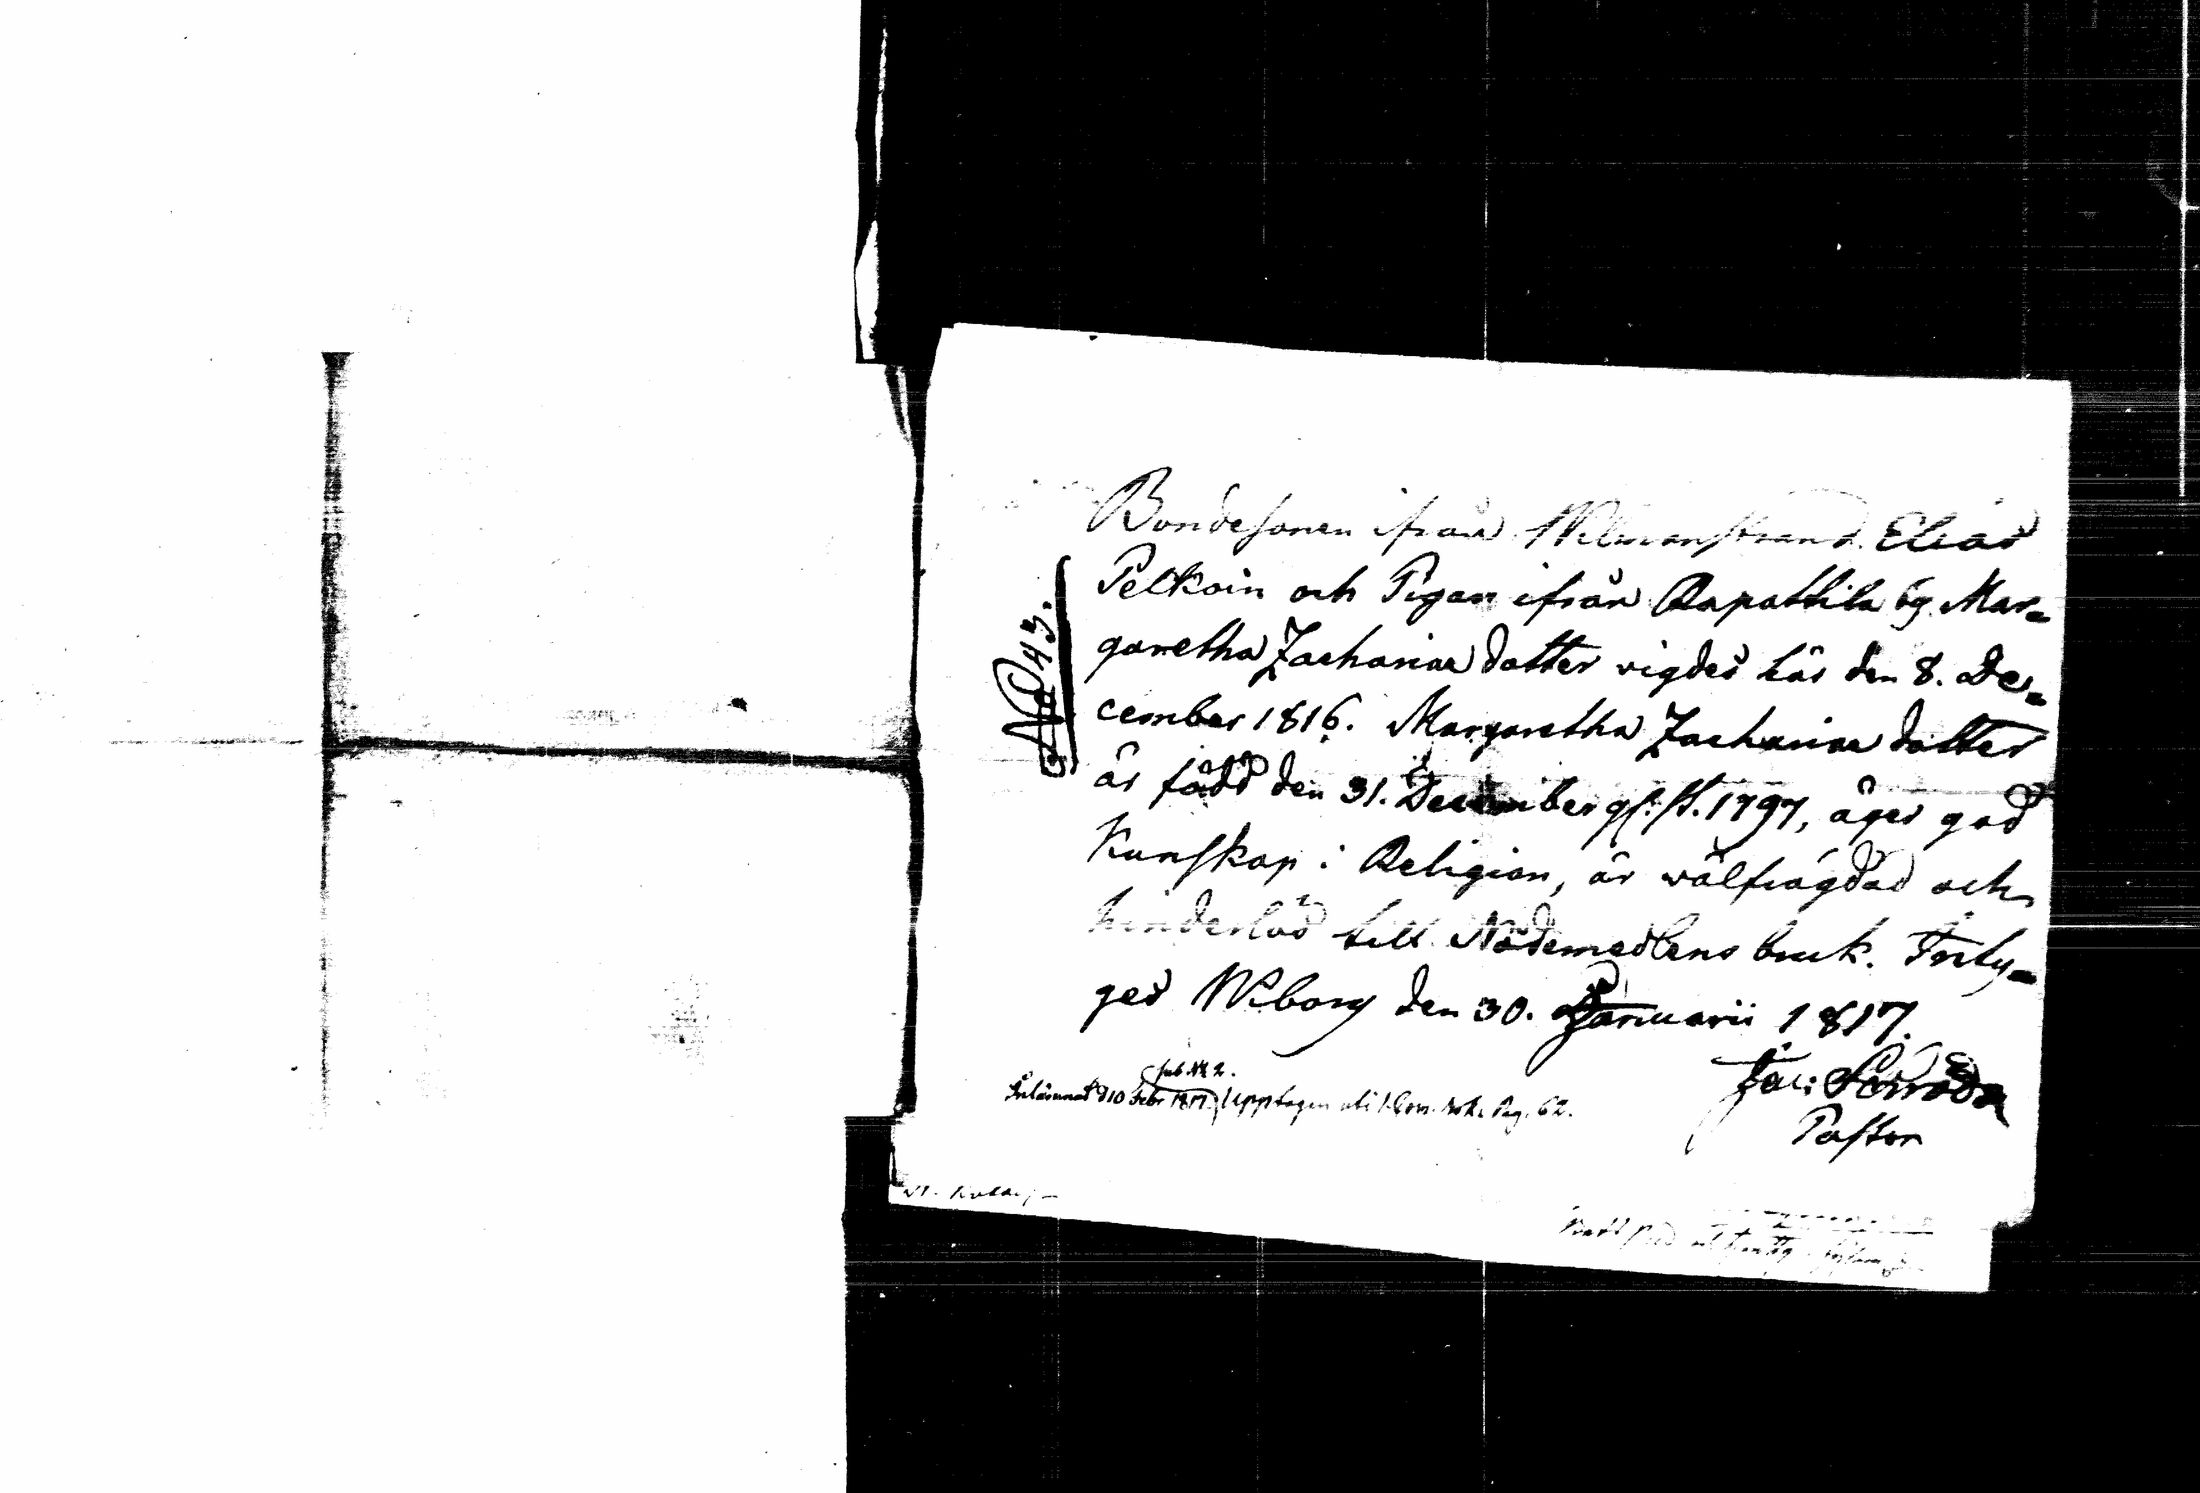 No 43.
Bondesonen ifrån Wilmanstrand Elias
Pelkoin och Pigan ifrån Rapattila by Mar=
garetha Zachariae dotter vigdes här den 8. De=
cember 1816. Margaretha Zachariae dotter
är född den 31. December gl. st. 1797, äger god
Kunskap i Religion, är välfrägdad och
hinderlös till Nådemedlens bruk. Inty=
ges Wiborg den 30. Januarii 1817.
Jac:
Pastor
sub No 2.
Inlämnad d 10 Febr 1817. Upptagen uti Pag. 62.